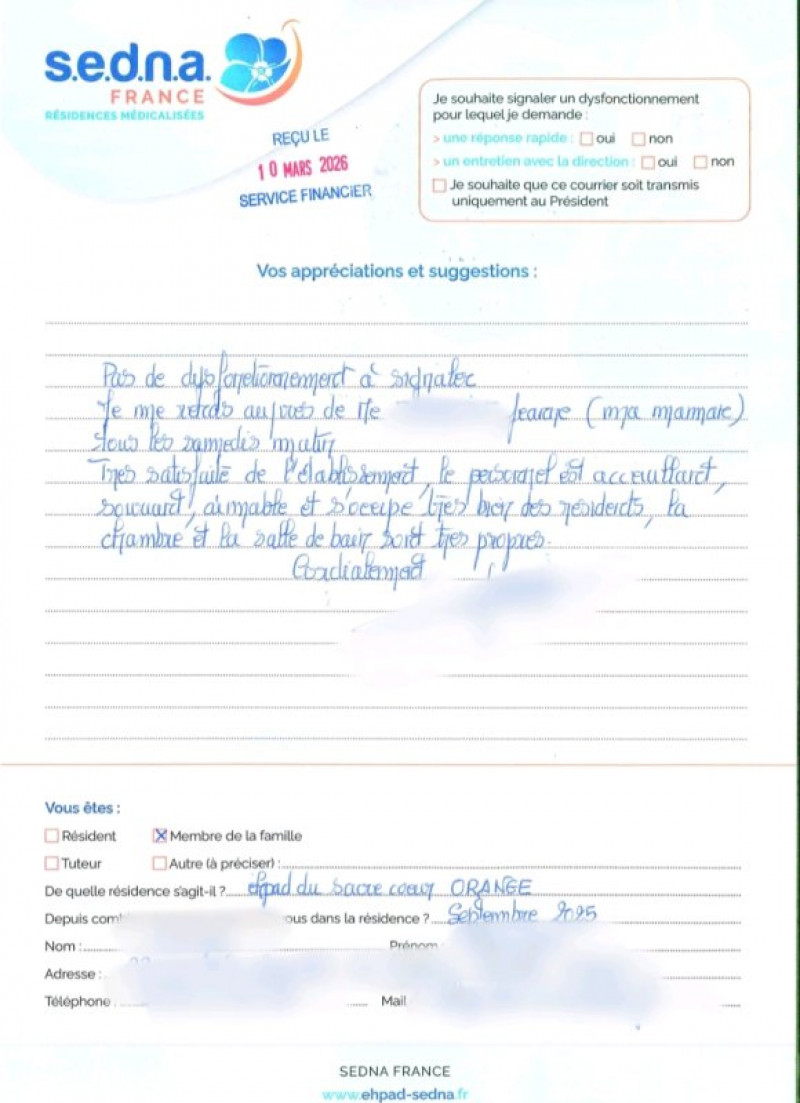 s.e.d.n.a.
FRANCE
RÉSIDENCES MÉDICALISÉES
REÇU LE
10 MARS 2026
SERVICE FINANCIER
Je souhaite signaler un dysfonctionnement
pour lequel je demande :
> une réponse rapide : oui non
> un entretien avec la direction : oui non
Je souhaite que ce courrier soit transmis
uniquement au Président
Vos appréciations et suggestions :
Pas de dysfonctionnement à signaler
Je me rends auprès de Me (ma maman)
tous les samedis matin
Très satisfaite de l'établissement, le personnel est acceuillant,
souriant, aimable et s'occupe très bien des résidents, la
chambre et la salle de bain sont très propres.
Cordialement
Vous êtes :
Résident Membre de la famille
Tuteur Autre (à préciser) :
De quelle résidence s'agit-il ? Ehpad du sacre coeur ORANGE
Depuis ous dans la résidence ? Septembre 2025
Nom : Prénom
Adresse :
Téléphone Mail
SEDNA FRANCE
www.ehpad-sedna.fr